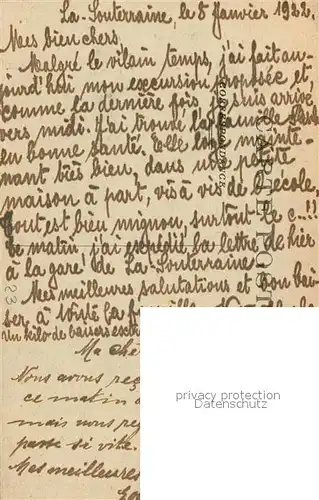 La-Souterraine, le 8 Janvier 1932.
Mes bien chers.
Malgré le vilain temps, j'ai fait au-
jourd'hui mon excursion proposée et,
comme la dernière fois je suis arrivé
vers midi. J'ai trouvé la
en bonne santé. Elle loge mainte-
nant très bien, dans une petite
maison à part, vis à vis de l'école,
tout est bien mignon, surtout le c...!!
Ce matin, j'ai expédié la lettre de hier
à la gare de La-Souterraine.
Mes meilleures salutations et bon bai-
ser à toute la
Un kilo de baisers
CARTE POSTALE
23
Ma chè
Nous avons reç
ce matin
mais nous
passe si vite.
Mes meilleures
privacy protection
Datenschutz